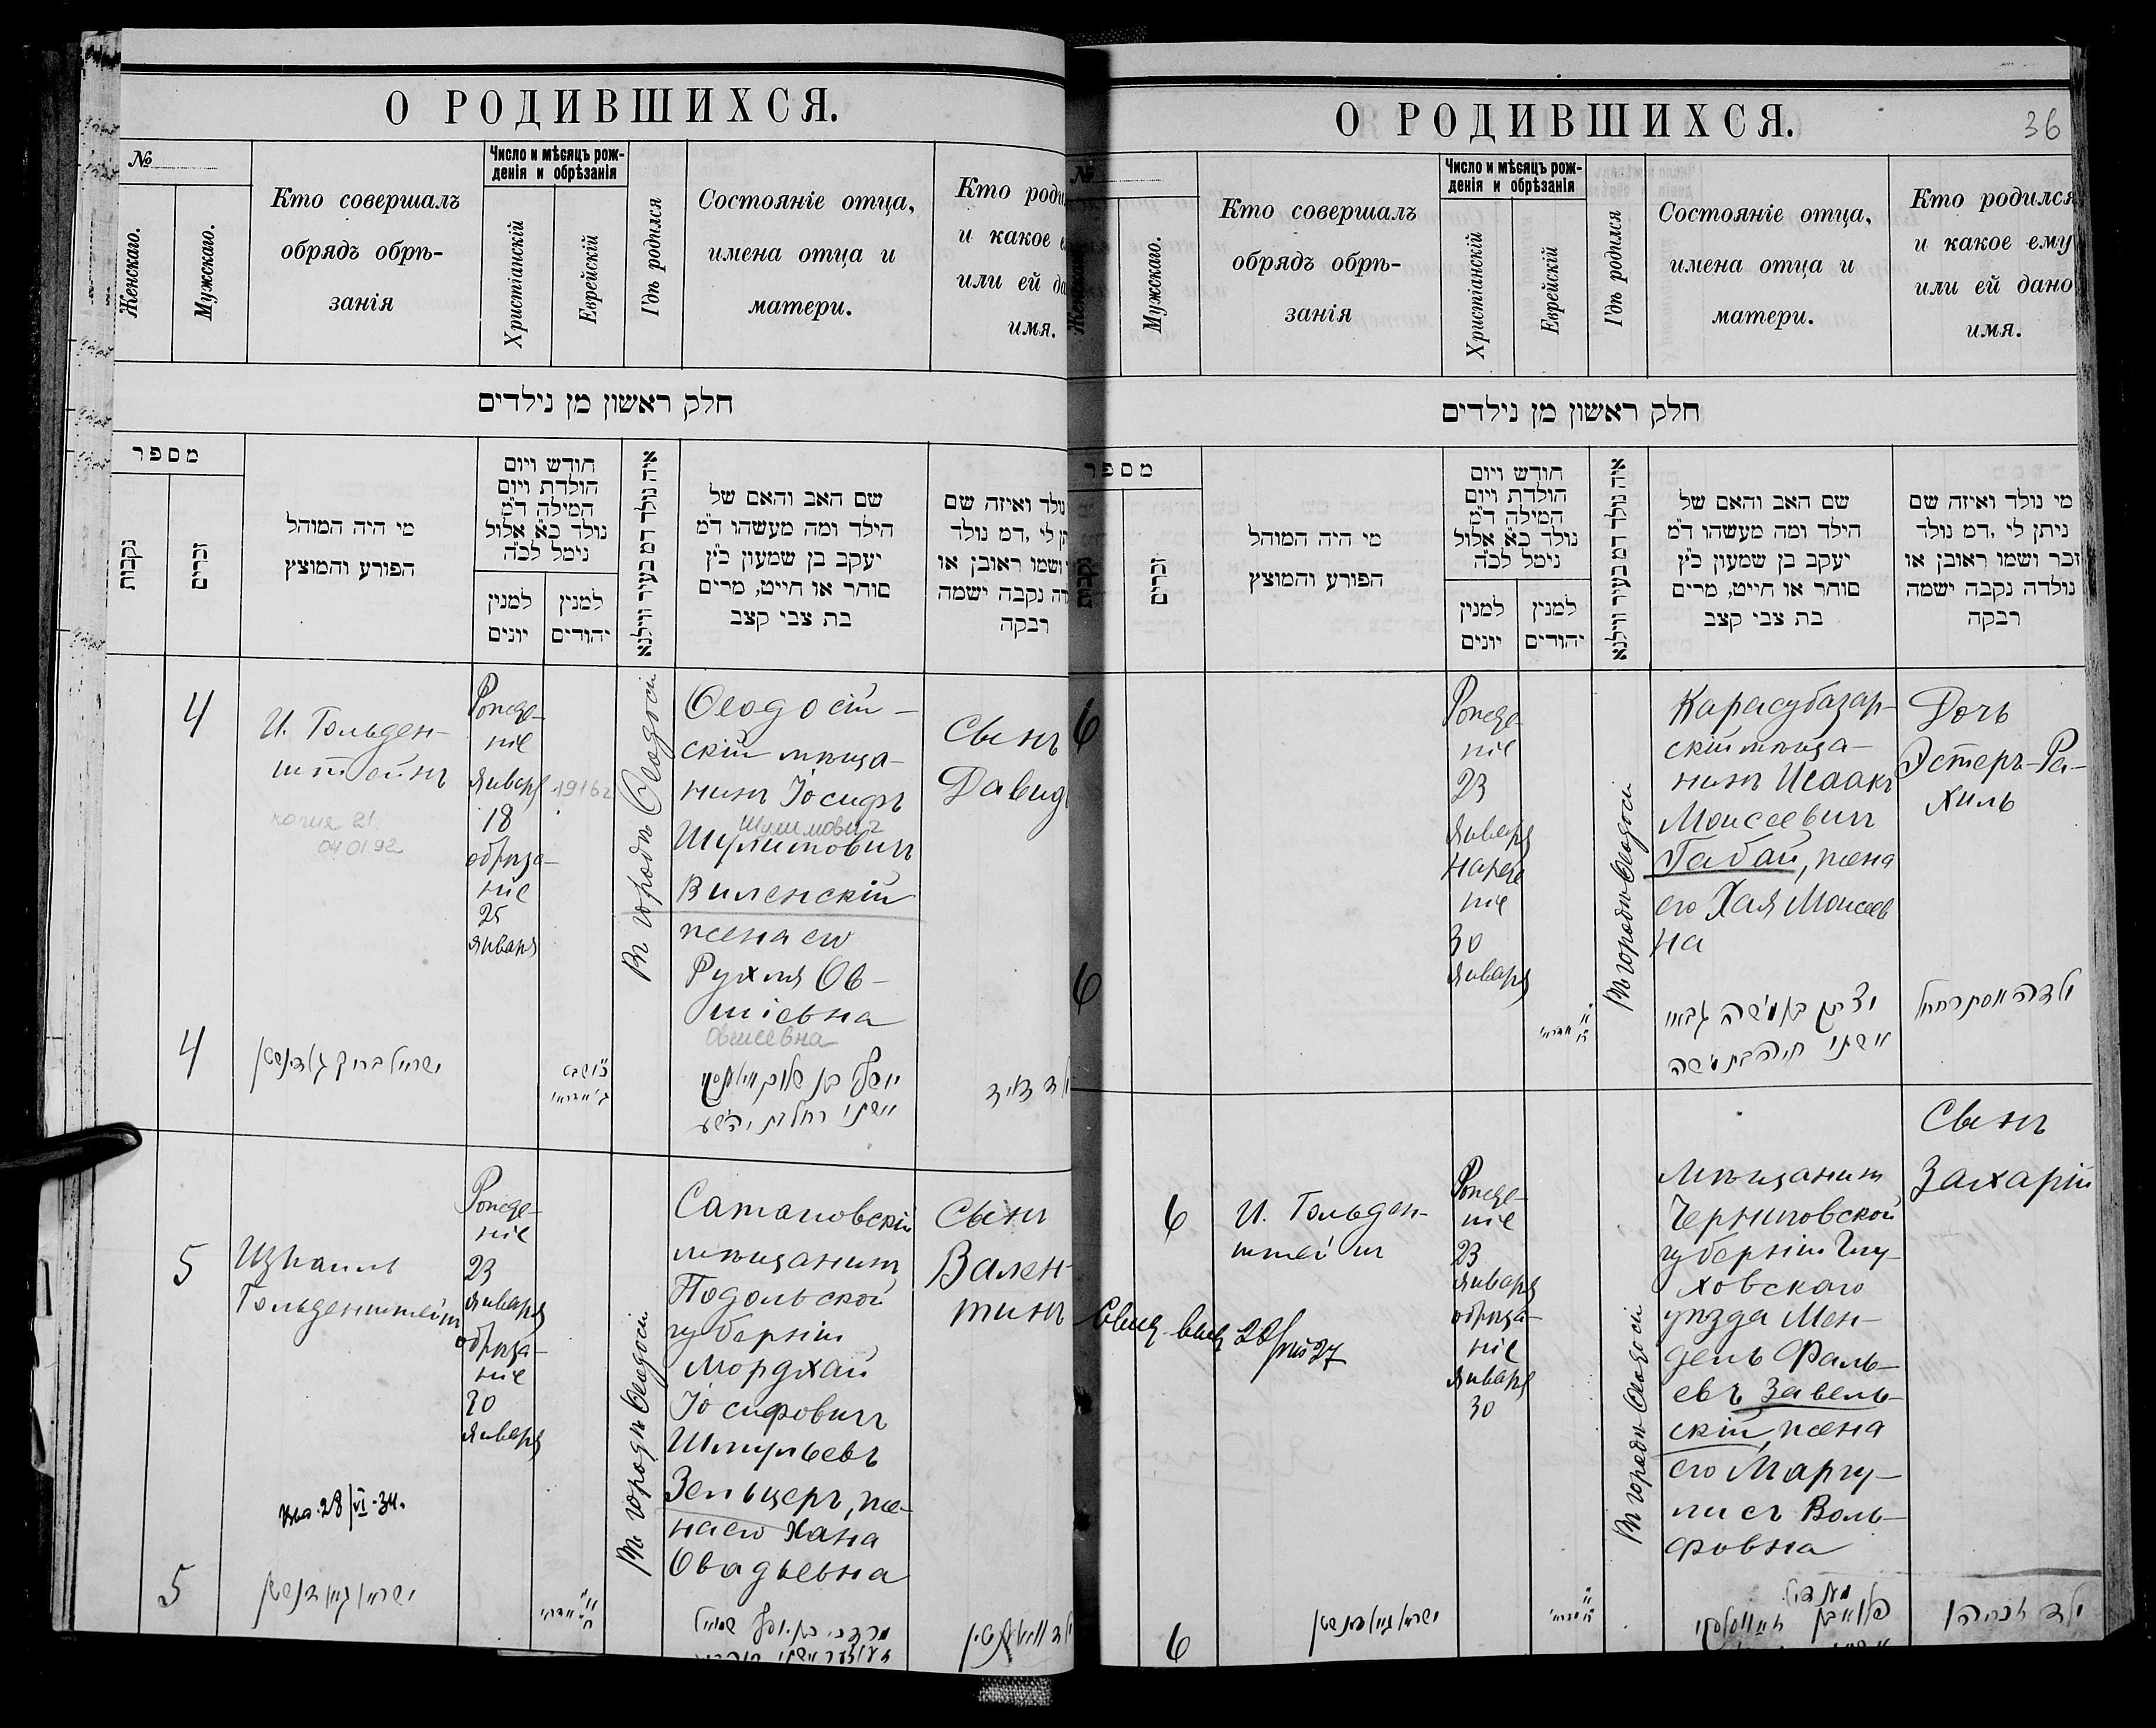 О РОДИВШИХСЯ.
№
Женскаго.
Мужскаго.
Кто совершалъ
обрядъ обрѣ-
занія
Число и мѣсяцъ рож-
денія и обрѣзанія
Христіанскій
Еврейскій
Гдѣ родился
Состояніе отца,
имена отца и
матери.
Кто роди
и какое е
или ей да
имя.
חלק ראשון מן נילדים
מספר
נקבות
זכרים
מי היה המוהל
הפורע והמוצץ
חודש ויום
הולדת ויום
המילה ד״מ
נולד כ״א אלול
נימל לכ״ה
למנין
יונים
למנין
יהודים
איה נולד דמ בעיר ווילנא
שם האב והאם של
הילד ומה מעשהו ד״מ
יעקב בן שמעון כ״ץ
סוחר או חייט, מרים
בת צבי קצב
נולד ואיזה שם
תן לי ,דמ נולד
ושמו ראובן או
דה נקבה ישמה
רבקה
4
И. Гольден-
штейнъ
копия 21
04.01.92
Рожде-
ніе
Январ
18
обрѣза-
ніе
25
Января
1916г
Въ городѣ Ѳеодосіи
Ѳеодосій-
скій мѣща-
нинъ Іосифъ
Шулимович
Шулимовичъ
Виленскій
жена его
Рухля Ов-
шіевна
Овшеевна
Сынъ
Давид
4
ילד דוד
5
Израиль
Гольденштейнъ
Рожде-
ніе
23
Января
обрѣза-
ніе
30
Январь
Въ городѣ Ѳеодосіи
Сатановскій
мѣщанинъ
Подольской
губерніи
Мордхай
Іосифовичъ
Шмульевъ
Зельцеръ, же-
на его Хана
Овадьевна
Сынъ
Вален-
тинъ
28/VI-34.
5
О РОДИВШИХСЯ.
36
№
Мужскаго.
Кто совершалъ
обрядъ обрѣ-
занія
Число и мѣсяцъ рож-
денія и обрѣзанія
Христіанскій
Еврейскій
Гдѣ родился
Состояніе отца,
имена отца и
матери.
Кто родился
и какое ему
или ей дано
имя.
חלק ראשון מן נילדים
מספר
נקבות
זכרים
מי היה המוהל
הפורע והמוצץ
חודש ויום
הולדת ויום
המילה ד״מ
נולד כ״א אלול
נימל לכ״ה
למנין
יונים
למנין
יהודים
איה נולד דמ בעיר ווילנא
שם האב והאם של
הילד ומה מעשהו ד״מ
יעקב בן שמעון כ״ץ
סוחר או חייט, מרים
בת צבי קצב
מי נולד ואיזה שם
ניתן לי ,דמ נולד
זכר ושמו ראובן או
נולדה נקבה ישמה
רבקה
6
Рожде-
ніе
23
Января
нарече
ніе
30
Января
Въ городѣ Ѳеодосіи
Карасубазар-
скій мѣща-
нинъ Исаакъ
Моисеевичъ
Габай, жена
его Хая Моисеев
на
Дочь
Эстеръ-Ра-
хиль
6
יצחק בן משה גבאי
אשתו חיה בת משה
ילדה אסתר רחל
6
И. Гольден-
штейнъ
Рожде-
ніе
23
Января
обрѣза-
ніе
Января
30
Въ городѣ Ѳеодосіи
Мѣщанинъ
Черниговской
губерніи Глу-
ховскаго
уѣзда Мен-
дель Фаль-
евъ Завель-
скій, жена
его Маргу-
лисъ Воль-
фовна
Сынъ
Захарій
6
ילד זכריהו